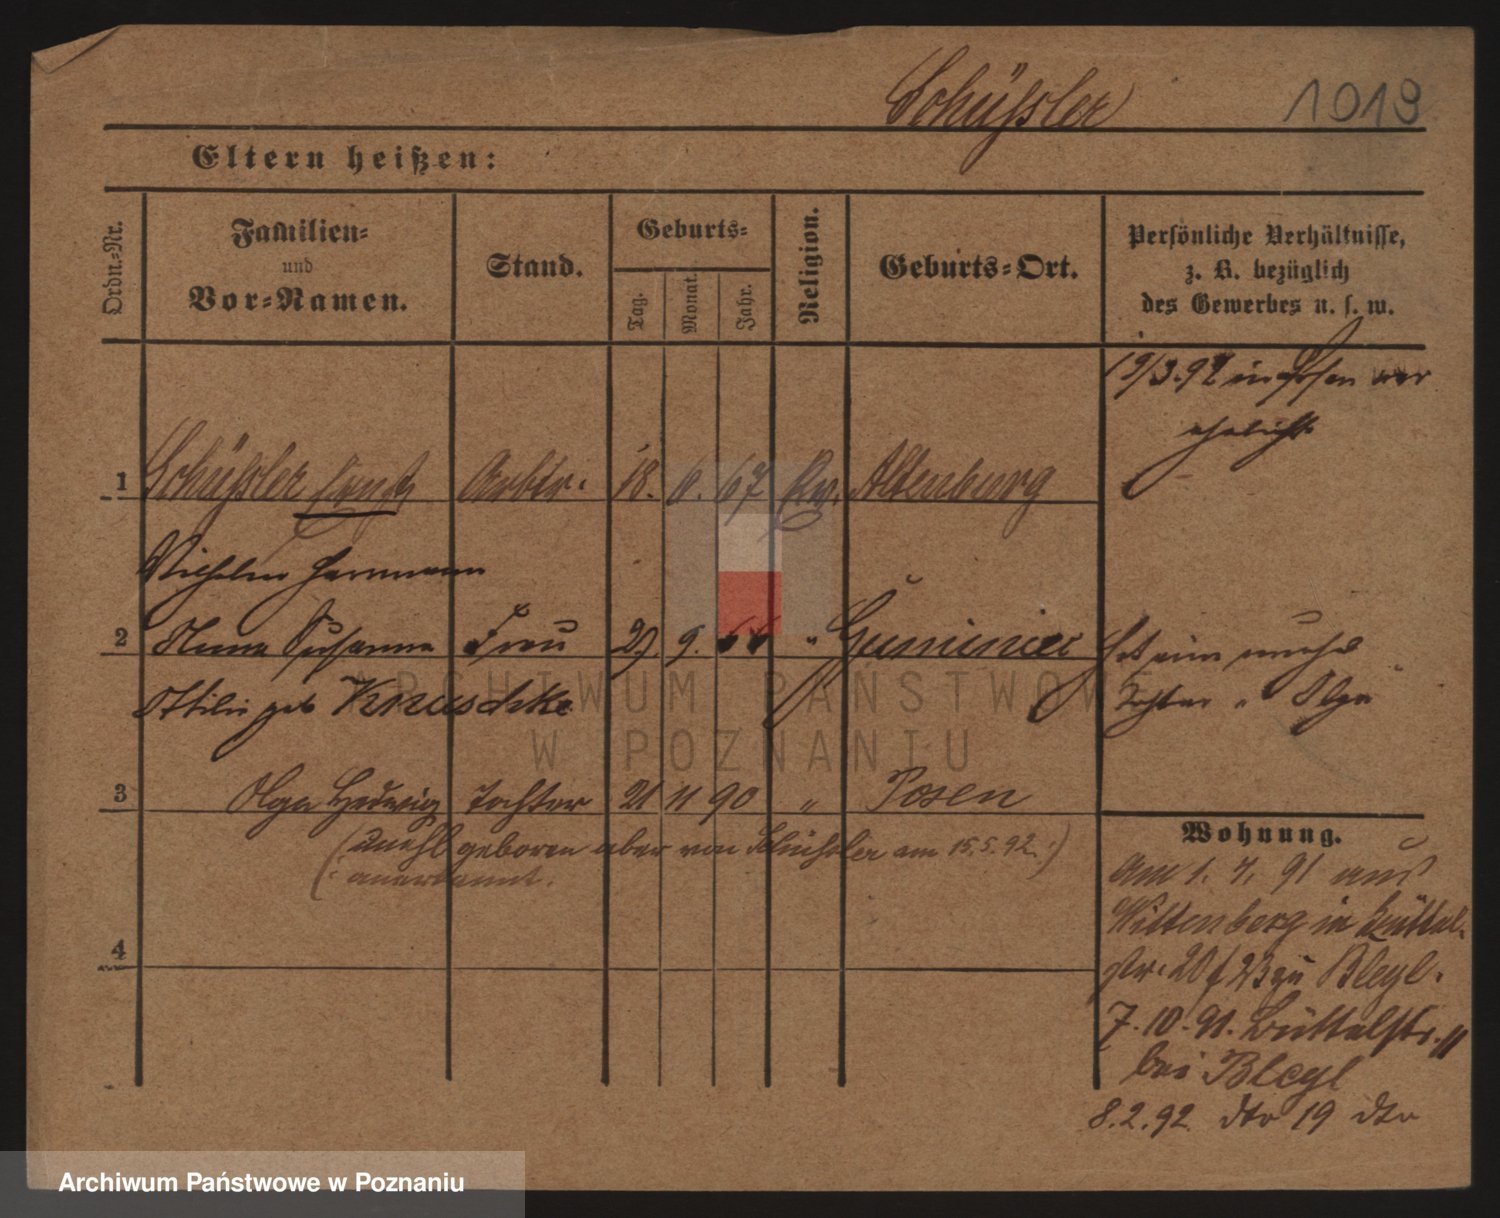 Schüßler
1019
Eltern heißen:
Ordn.-Nr.
Familien-
und
Vor-Namen.
Stand.
Geburts-
Tag.
Monat.
Jahr.
Religion.
Geburts-Ort.
Persönliche Verhältnisse,
z. B. bezüglich
des Gewerbes u. s. w.
19/3.92 in Posen ver
ehelicht
1 Schüßler Ernst Arbtr. 18. 6. 67 Ev. Altenburg
Wilhelm Hermann
2 Anna Susanna Frau 29 9. " 
Hat eine unehel
Ottilie geb Kruschke
Tochter " Olga
3 Olga Hedwig Tochter 21 11 90 " Posen
(: unehl geboren aber von Schüssler am 15.5.92 :)
anerkannt.
4
Wohnung.
Am 1. 7. 91 aus
Wittenberg in Büttel-
str. 20 / 23 zu Bleyl.
7.10.91. Büttelstr. 11
bei Bleyl
8.2.92 dto 19 dto
ARCHIWUM PAŃSTWOWE
W POZNANIU
Archiwum Państwowe w Poznaniu